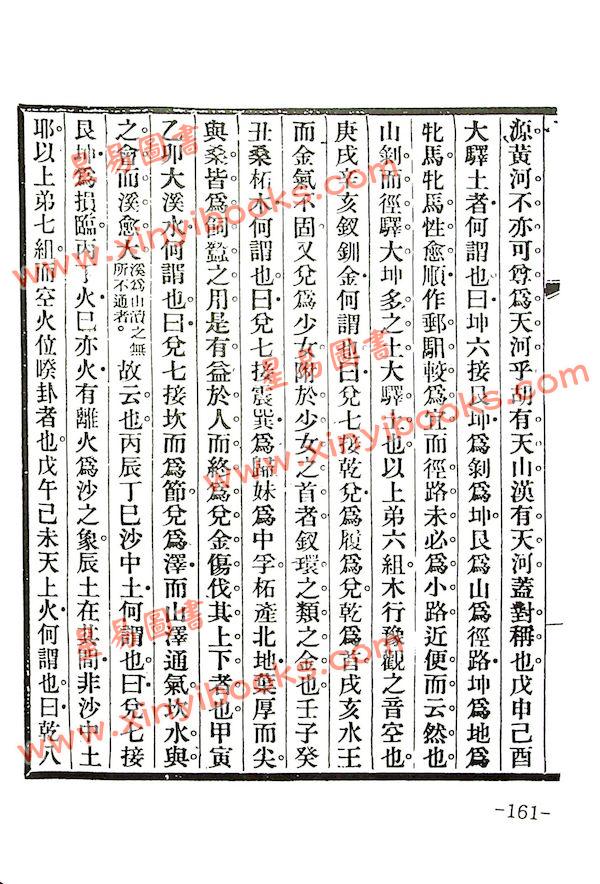 源黃河不亦可尊爲天河乎胡有天山漢有天河蓋對稱也戊申己酉
大驛土者何謂也曰坤六接艮坤爲剝爲坤艮爲山爲徑路坤爲地爲
牝馬牝馬性愈順作郵馹較爲宜而徑路未必爲小路近便而云然也
山剝而徑驛大坤多之土大驛土也以上弟六組木行豫觀之音空也
庚戌辛亥釵釧金何謂也曰兌七接乾兌爲履爲兌乾爲首戌亥水王
而金氣不固又兌爲少女附於少女之首者釵環之類之金也壬子癸
丑桑柘木何謂也曰兌七接震巽爲歸妹爲中孚柘產北地葉厚而尖
與桑皆爲飼蠶之用是有益於人而終爲兌金傷伐其上下者也甲寅
乙卯大溪水何謂也曰兌七接坎而爲節兌爲澤而山澤通氣坎水與
之會而溪愈大溪爲山瀆之無所不通者。故云也丙辰丁巳沙中土何謂也曰兌七接
艮坤爲損臨丙丁火巳亦火有離火爲沙之象辰土在其間非沙中土
耶以上弟七組而空火位暌卦者也戊午己未天上火何謂也曰乾八
-161-
星易圖書
www.xinyibooks.com
星易圖書
www.xinyibooks.com
星易圖書
www.xinyibooks.com